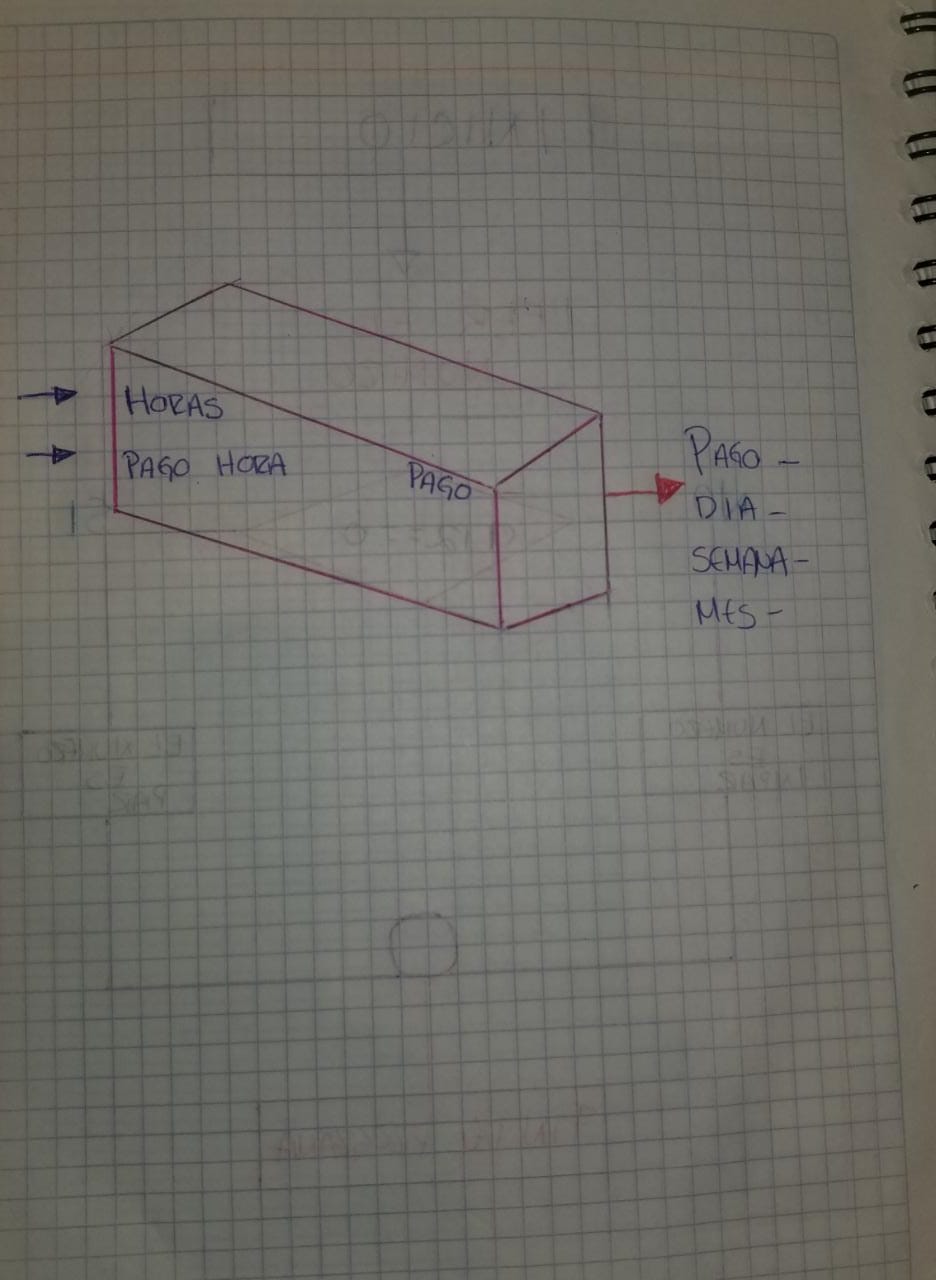 HORAS
PAGO HORA
PAGO
PAGO -
DIA -
SEMANA-
MES -